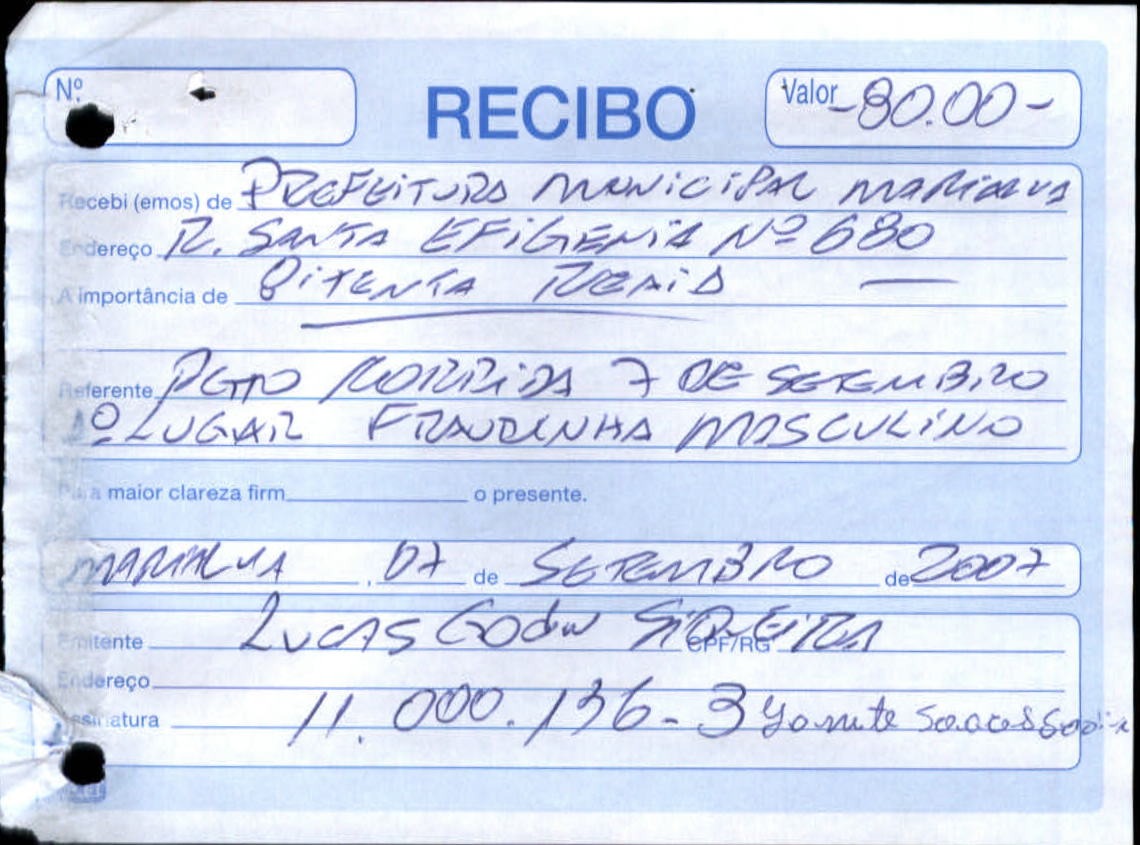 Nº
RECIBO
Valor -80.00-
Recebi (emos) de PREFEITURA MUNICIPAL MARIALVA
Endereço R. SANTA EFIGENIA Nº 680
A importância de OITENTA REAIS —
Referente PGTO CORRIDA 7 DE SETEMBRO
1º LUGAR FRALDINHA MASCULINO
Para maior clareza firm__________ o presente.
MARIALVA , 07 de SETEMBRO de 2007
Emitente LUCAS GODOY SIQUEIRA CPF/RG
Endereço
Assinatura 11.000.136-3